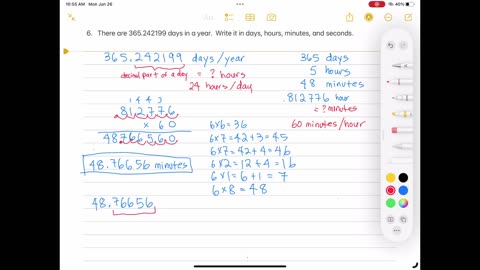 10:55 AM Mon Jun 26
40%
6. There are 365.242199 days in a year. Write it in days, hours, minutes, and seconds.
365.242199 days/year
365 days
decimal part of a day = ? hours
5 hours
24 hours/day
48 minutes
1 4 4 3
.812776 hour
812776
= ? minutes
× 60
6×6=36
60 minutes/hour
48.766560
6×7=42+3=45
6×7=42+4=46
48.76656 minutes
6×2=12+4=16
6×1=6+1=7
6×8=48
48.76656